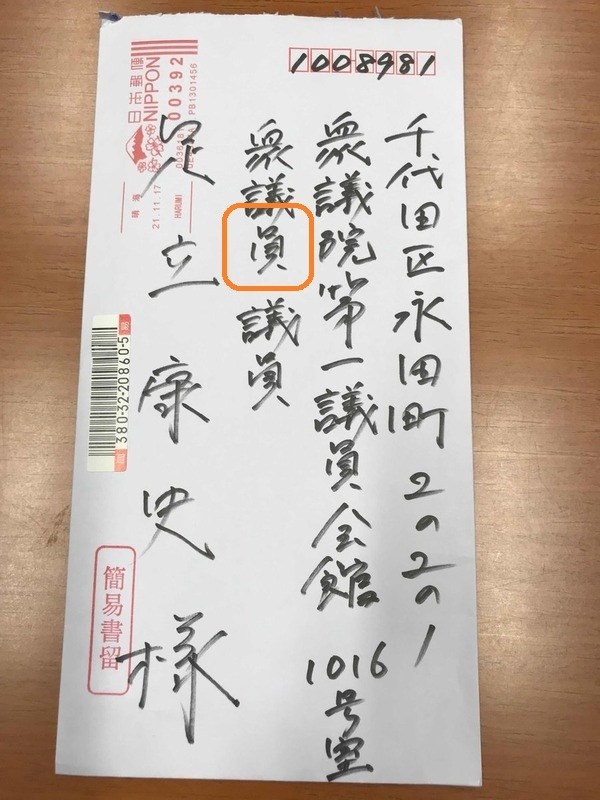 1008981
千代田区永田町2の2の1
衆議院第一議員会館 1016号室
衆議員 議員
足立康史 様
日本郵便
NIPPON
00392
PB1301456
晴海
21.11.17
HARUMI
380-32-20860-5
簡易書留